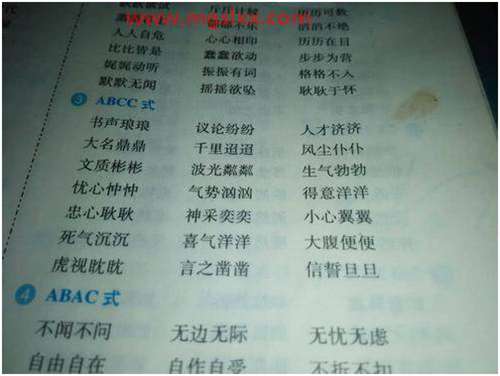 斤斤计较 历历可数
人人自危 心心相印 历历在目
比比皆是 蠢蠢欲动 步步为营
娓娓动听 振振有词 格格不入
默默无闻 摇摇欲坠 耿耿于怀
3 ABCC 式
书声琅琅 议论纷纷 人才济济
大名鼎鼎 千里迢迢 风尘仆仆
文质彬彬 波光粼粼 生气勃勃
忧心忡忡 气势汹汹 得意洋洋
忠心耿耿 神采奕奕 小心翼翼
死气沉沉 喜气洋洋 大腹便便
虎视眈眈 言之凿凿 信誓旦旦
4 ABAC 式
不闻不问 无边无际 无忧无虑
自由自在 自作自受 不折不扣